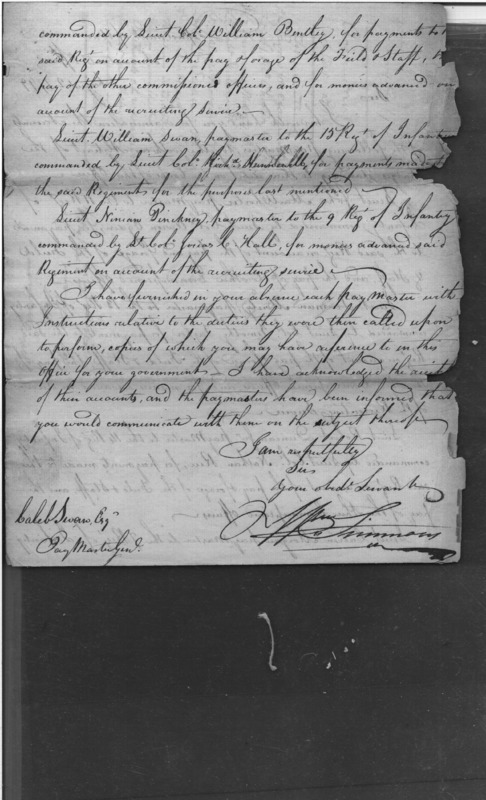 commanded by Lieut Colo. William Bentley, for payments to
said Regt on account of the pay & forage of the Field & Staff, 
pay of the other commissioned officers, and for monies advanced on
account of the recruiting service.
Lieut. William Swan, paymaster to the 15 Regt of Infantry
commanded by Lieut Colo. for payments made
the said Regiment for the purposes last mentioned
Lieut. Ninian Pinckney, paymaster to the 9 Regt of Infantry
commanded by Lt Colo. Josias C Hall, for monies advanced said
Regiment on account of the recruiting service
I have furnished in your absence each Pay Master with
Instructions relative to the duties they were then called upon
to perform, copies of which you may have reference to in this
Office for your government — I have acknowledged the
of their accounts, and the paymasters have been informed that
you would communicate with them on the subject thereof
I am respectfully
Sir
Your obedt Servant
Wm Simmons
Caleb Swan, Esqr
Pay Master Genl.